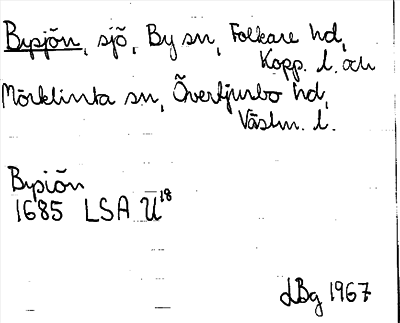 Bysjön, sjö, By sn, Folkare hd,
Kopp. l. och
Mörklinta sn, Övertjurbo hd,
Västm. l.
Bysiön
1685 LSA U 18
LBg 1967